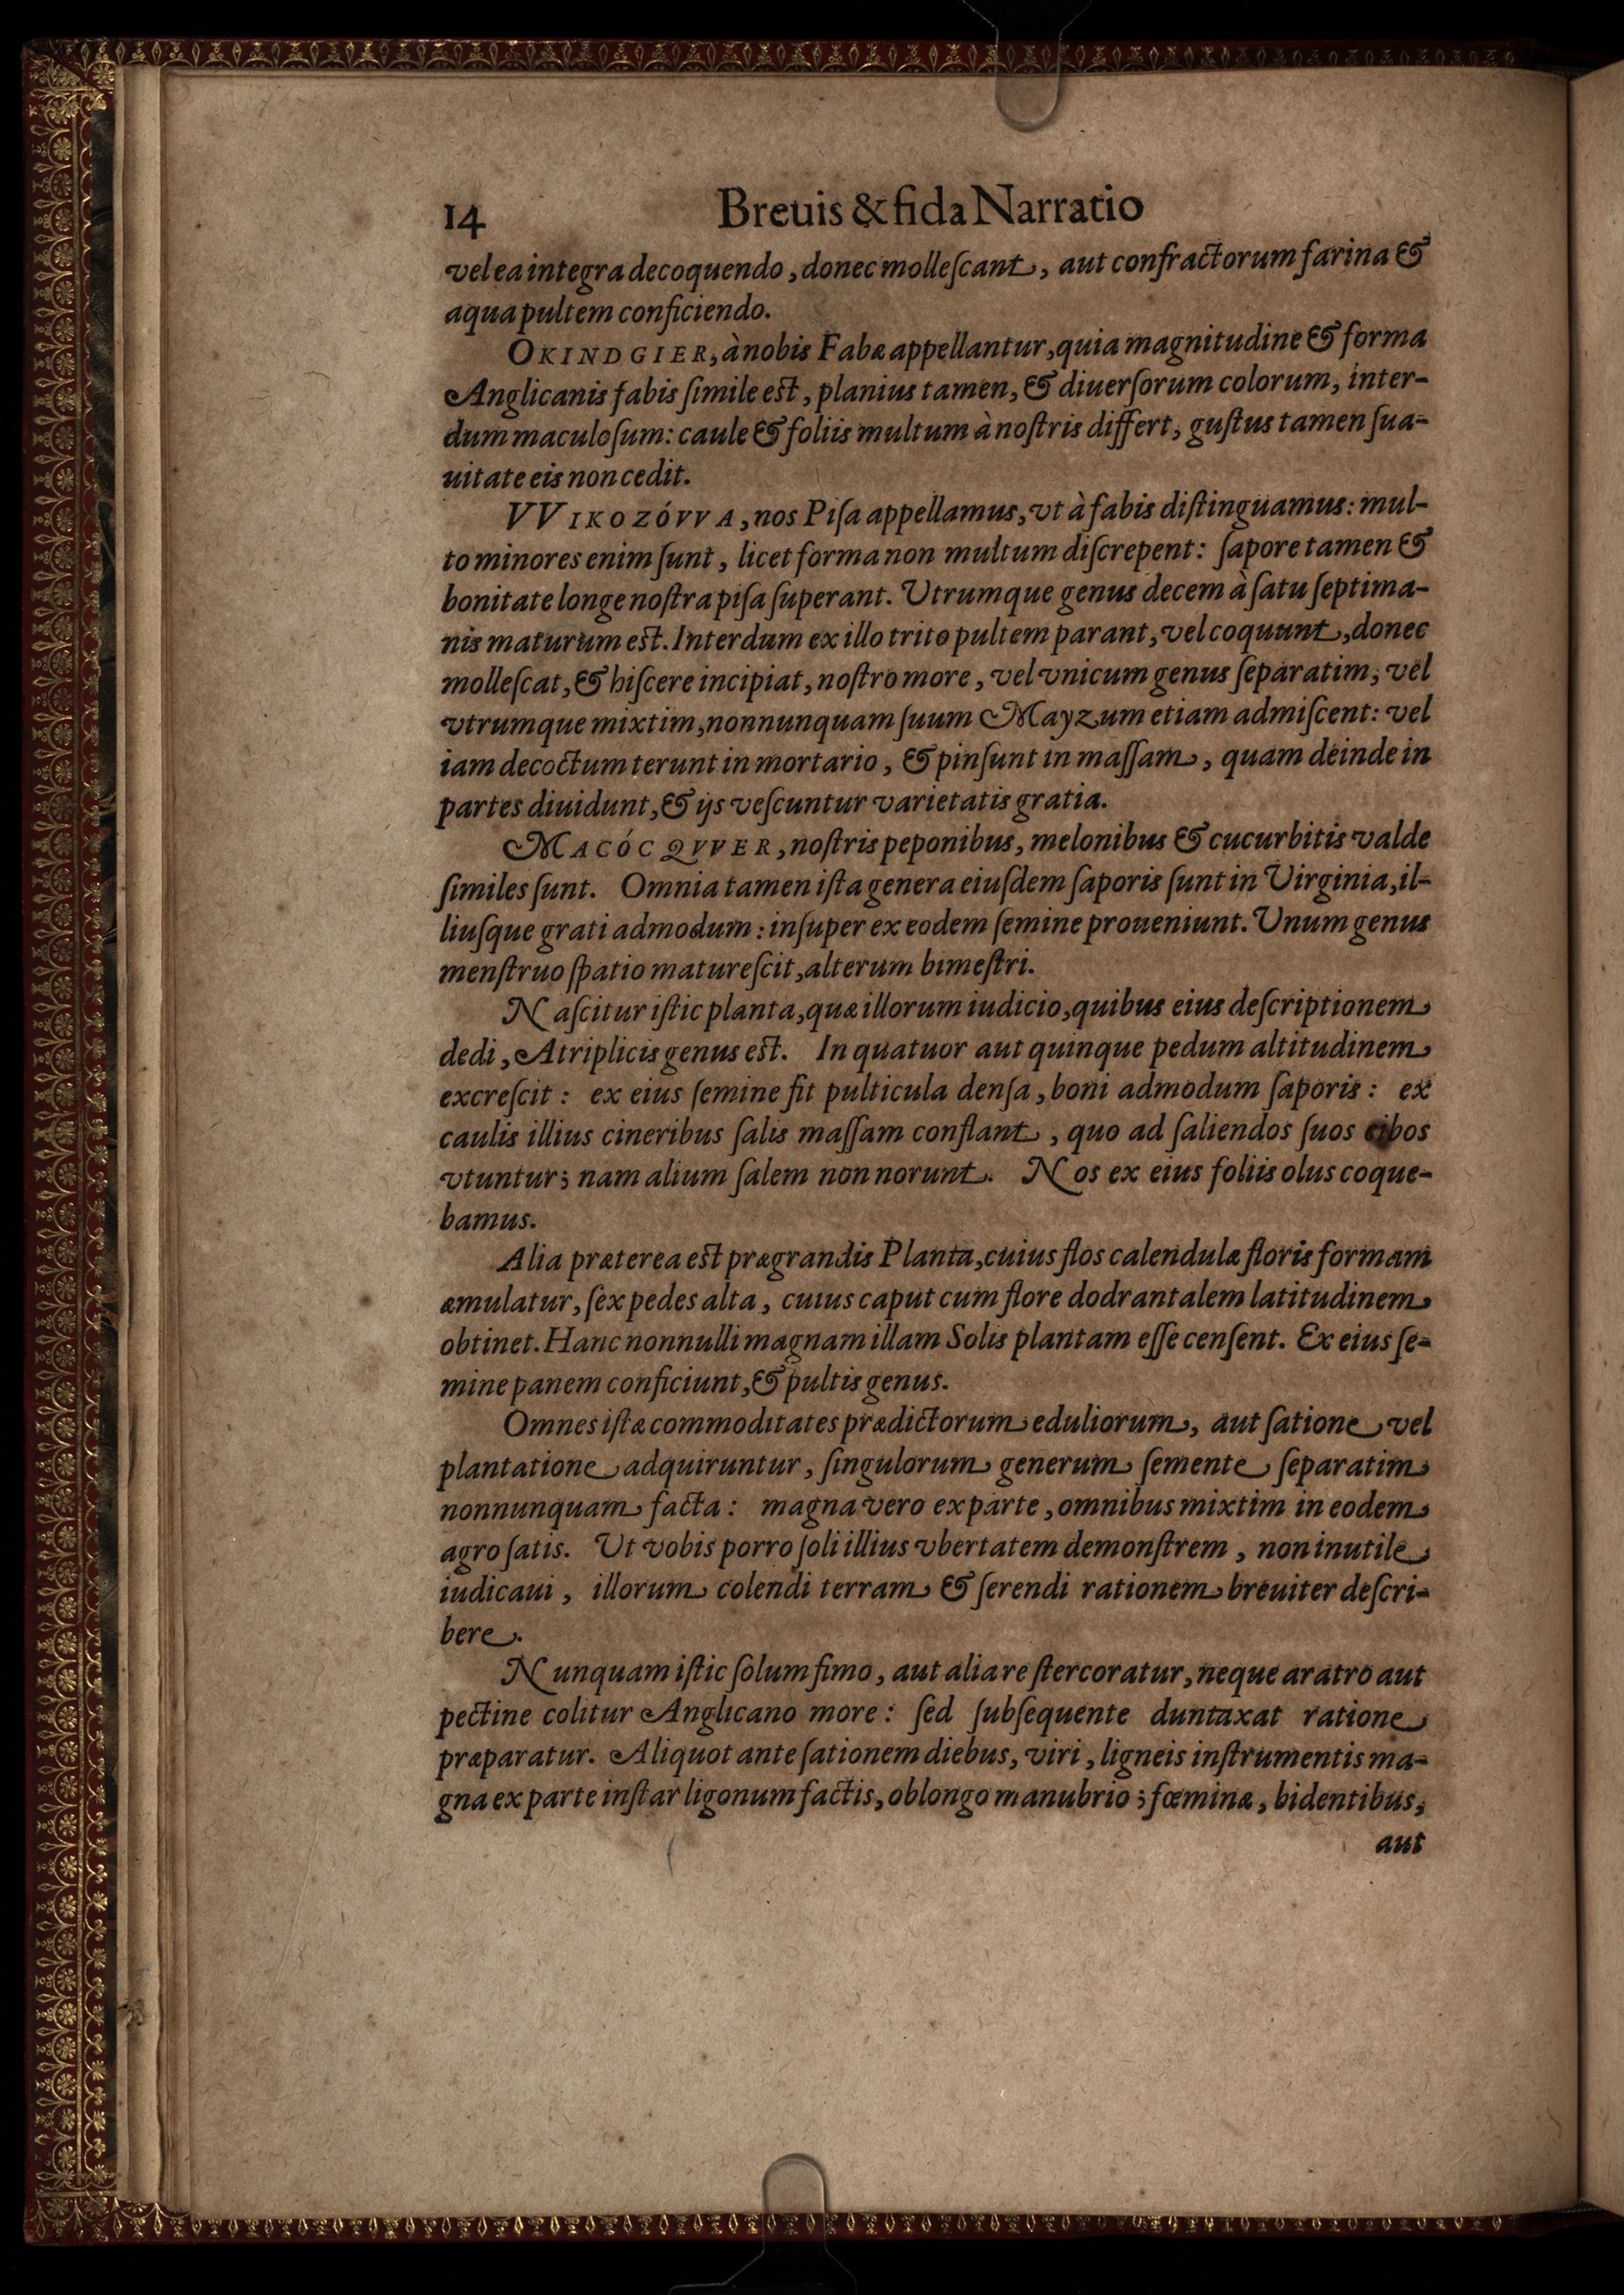 14 Breuis & fida Narratio
vel ea integra decoquendo, donec molleſcant, aut confractorum farina &
aqua pultem conficiendo.
OKINDGIER, à nobis Fabæ appellantur, quia magnitudine & forma
Anglicanis fabis ſimile eſt, planius tamen, & diuerſorum colorum, inter-
dum maculoſum: caule & foliis multum à noſtris differt, guſtus tamen ſua-
uitate eis non cedit.
VVIKOZÓVVA, nos Piſa appellamus, vt à fabis diſtinguamus: mul-
to minores enim ſunt, licet forma non multum diſcrepent: ſapore tamen &
bonitate longe noſtra piſa ſuperant. Utrumque genus decem à ſatu ſeptima-
nis maturum eſt. Interdum ex illo trito pultem parant, vel coquunt, donec
molleſcat, & hiſcere incipiat, noſtro more, vel vnicum genus ſeparatim, vel
vtrumque mixtim, nonnunquam ſuum Mayzum etiam admiſcent: vel
iam decoctum terunt in mortario, & pinſunt in maſſam, quam deinde in
partes diuidunt, & ijs veſcuntur varietatis gratia.
MACÓCQVVER, noſtris peponibus, melonibus & cucurbitis valde
ſimiles ſunt. Omnia tamen iſta genera eiuſdem ſaporis ſunt in Virginia, il-
liuſque grati admodum: inſuper ex eodem ſemine proueniunt. Unum genus
menſtruo ſpatio matureſcit, alterum bimeſtri.
Naſcitur iſtic planta, quæ illorum iudicio, quibus eius deſcriptionem
dedi, Atriplicis genus eſt. In quatuor aut quinque pedum altitudinem
excreſcit: ex eius ſemine fit pulticula denſa, boni admodum ſaporis: ex
caulis illius cineribus ſalis maſſam conflant, quo ad ſaliendos ſuos cibos
vtuntur; nam alium ſalem non norunt. Nos ex eius foliis olus coque-
bamus.
Alia præterea eſt prægrandis Planta, cuius flos calendulæ floris formam
æmulatur, ſex pedes alta, cuius caput cum flore dodrantalem latitudinem
obtinet. Hanc nonnulli magnam illam Solis plantam eſſe cenſent. Ex eius ſe-
mine panem conficiunt, & pultis genus.
Omnes iſtæ commoditates prædictorum eduliorum, aut ſatione vel
plantatione adquiruntur, ſingulorum generum ſemente ſeparatim
nonnunquam facta: magna vero ex parte, omnibus mixtim in eodem
agro ſatis. Ut vobis porro ſoli illius vbertatem demonſtrem, non inutile
iudicaui, illorum colendi terram & ſerendi rationem breuiter deſcri-
bere.
Nunquam iſtic ſolum fimo, aut alia re ſtercoratur, neque aratro aut
pectine colitur Anglicano more: ſed ſubſequente duntaxat ratione
præparatur. Aliquot ante ſationem diebus, viri, ligneis inſtrumentis ma-
gna ex parte inſtar ligonum factis, oblongo manubrio; fœminæ, bidentibus,
aut